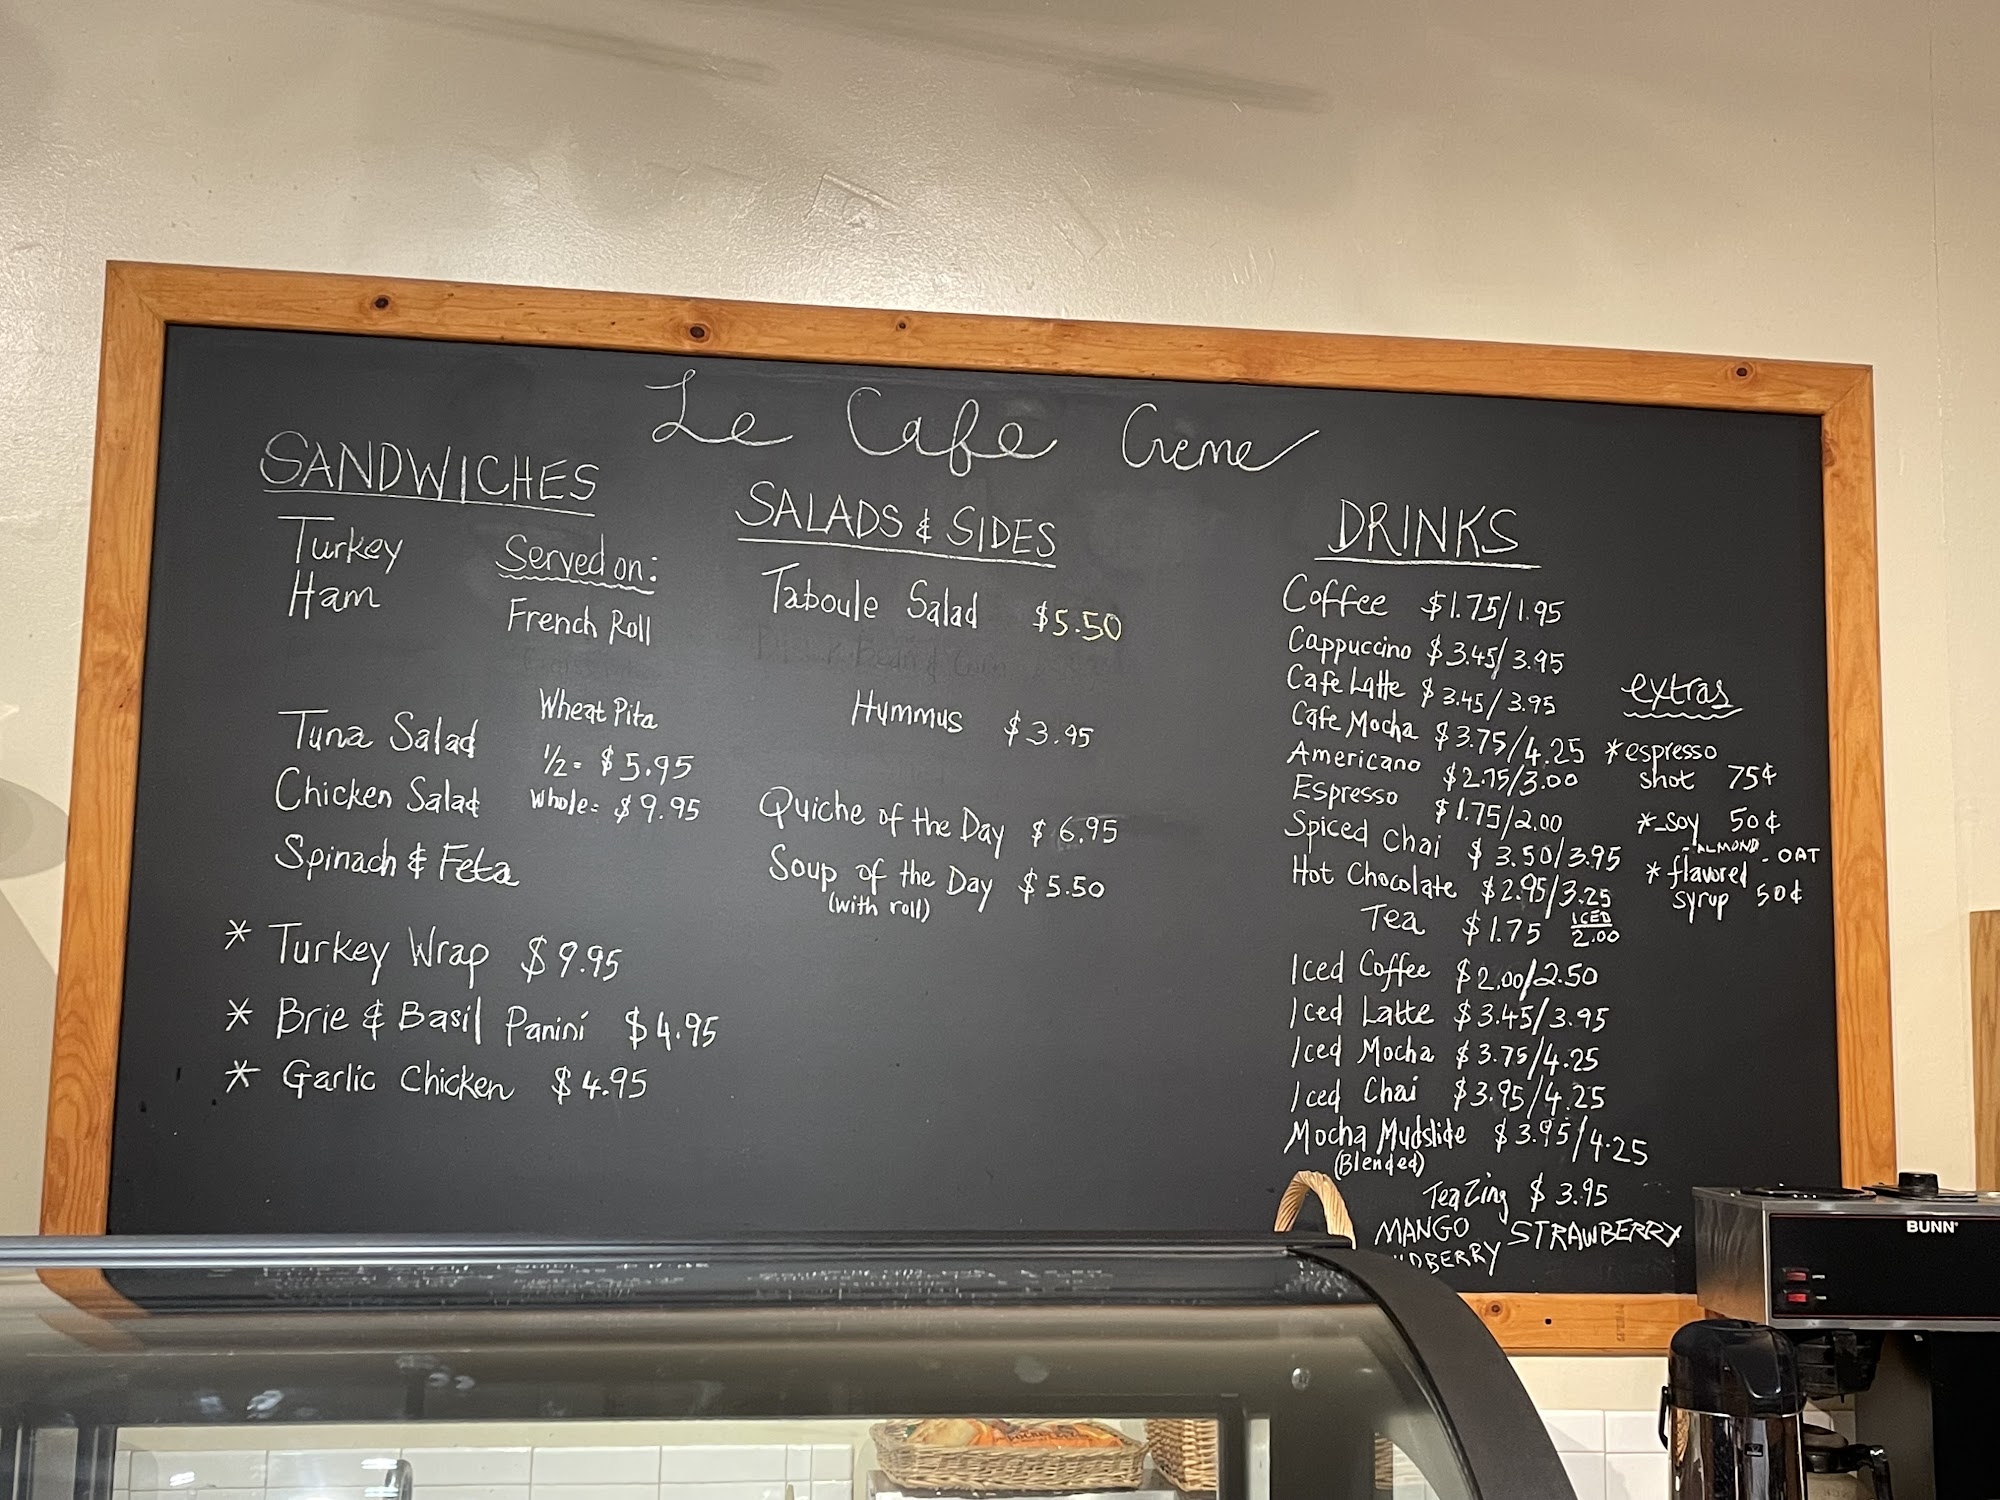 Le Cafe Creme
SANDWICHES
Turkey
Ham
Served on:
French Roll
Wheat Pita
1/2 = $5.95
Whole = $9.95
Tuna Salad
Chicken Salad
Spinach & Feta
* Turkey Wrap $9.95
* Brie & Basil Panini $4.95
* Garlic Chicken $4.95
SALADS & SIDES
Taboule Salad $5.50
Hummus $3.95
Quiche of the Day $6.95
Soup of the Day $5.50
(with roll)
DRINKS
Coffee $1.75/1.95
Cappuccino $3.45/3.95
Cafe Latte $3.45/3.95
Cafe Mocha $3.75/4.25
Americano $2.75/3.00
Espresso $1.75/2.00
Spiced Chai $3.50/3.95
Hot Chocolate $2.95/3.25
Tea $1.75 ICED 2.00
Iced Coffee $2.00/2.50
Iced Latte $3.45/3.95
Iced Mocha $3.75/4.25
Iced Chai $3.95/4.25
Mocha Mudslide $3.95/4.25
(Blended)
TeaZing $3.95
MANGO STRAWBERRY
extras
* espresso
shot 75¢
* -soy 50¢
-ALMOND -OAT
* flavored
syrup 50¢
BUNN